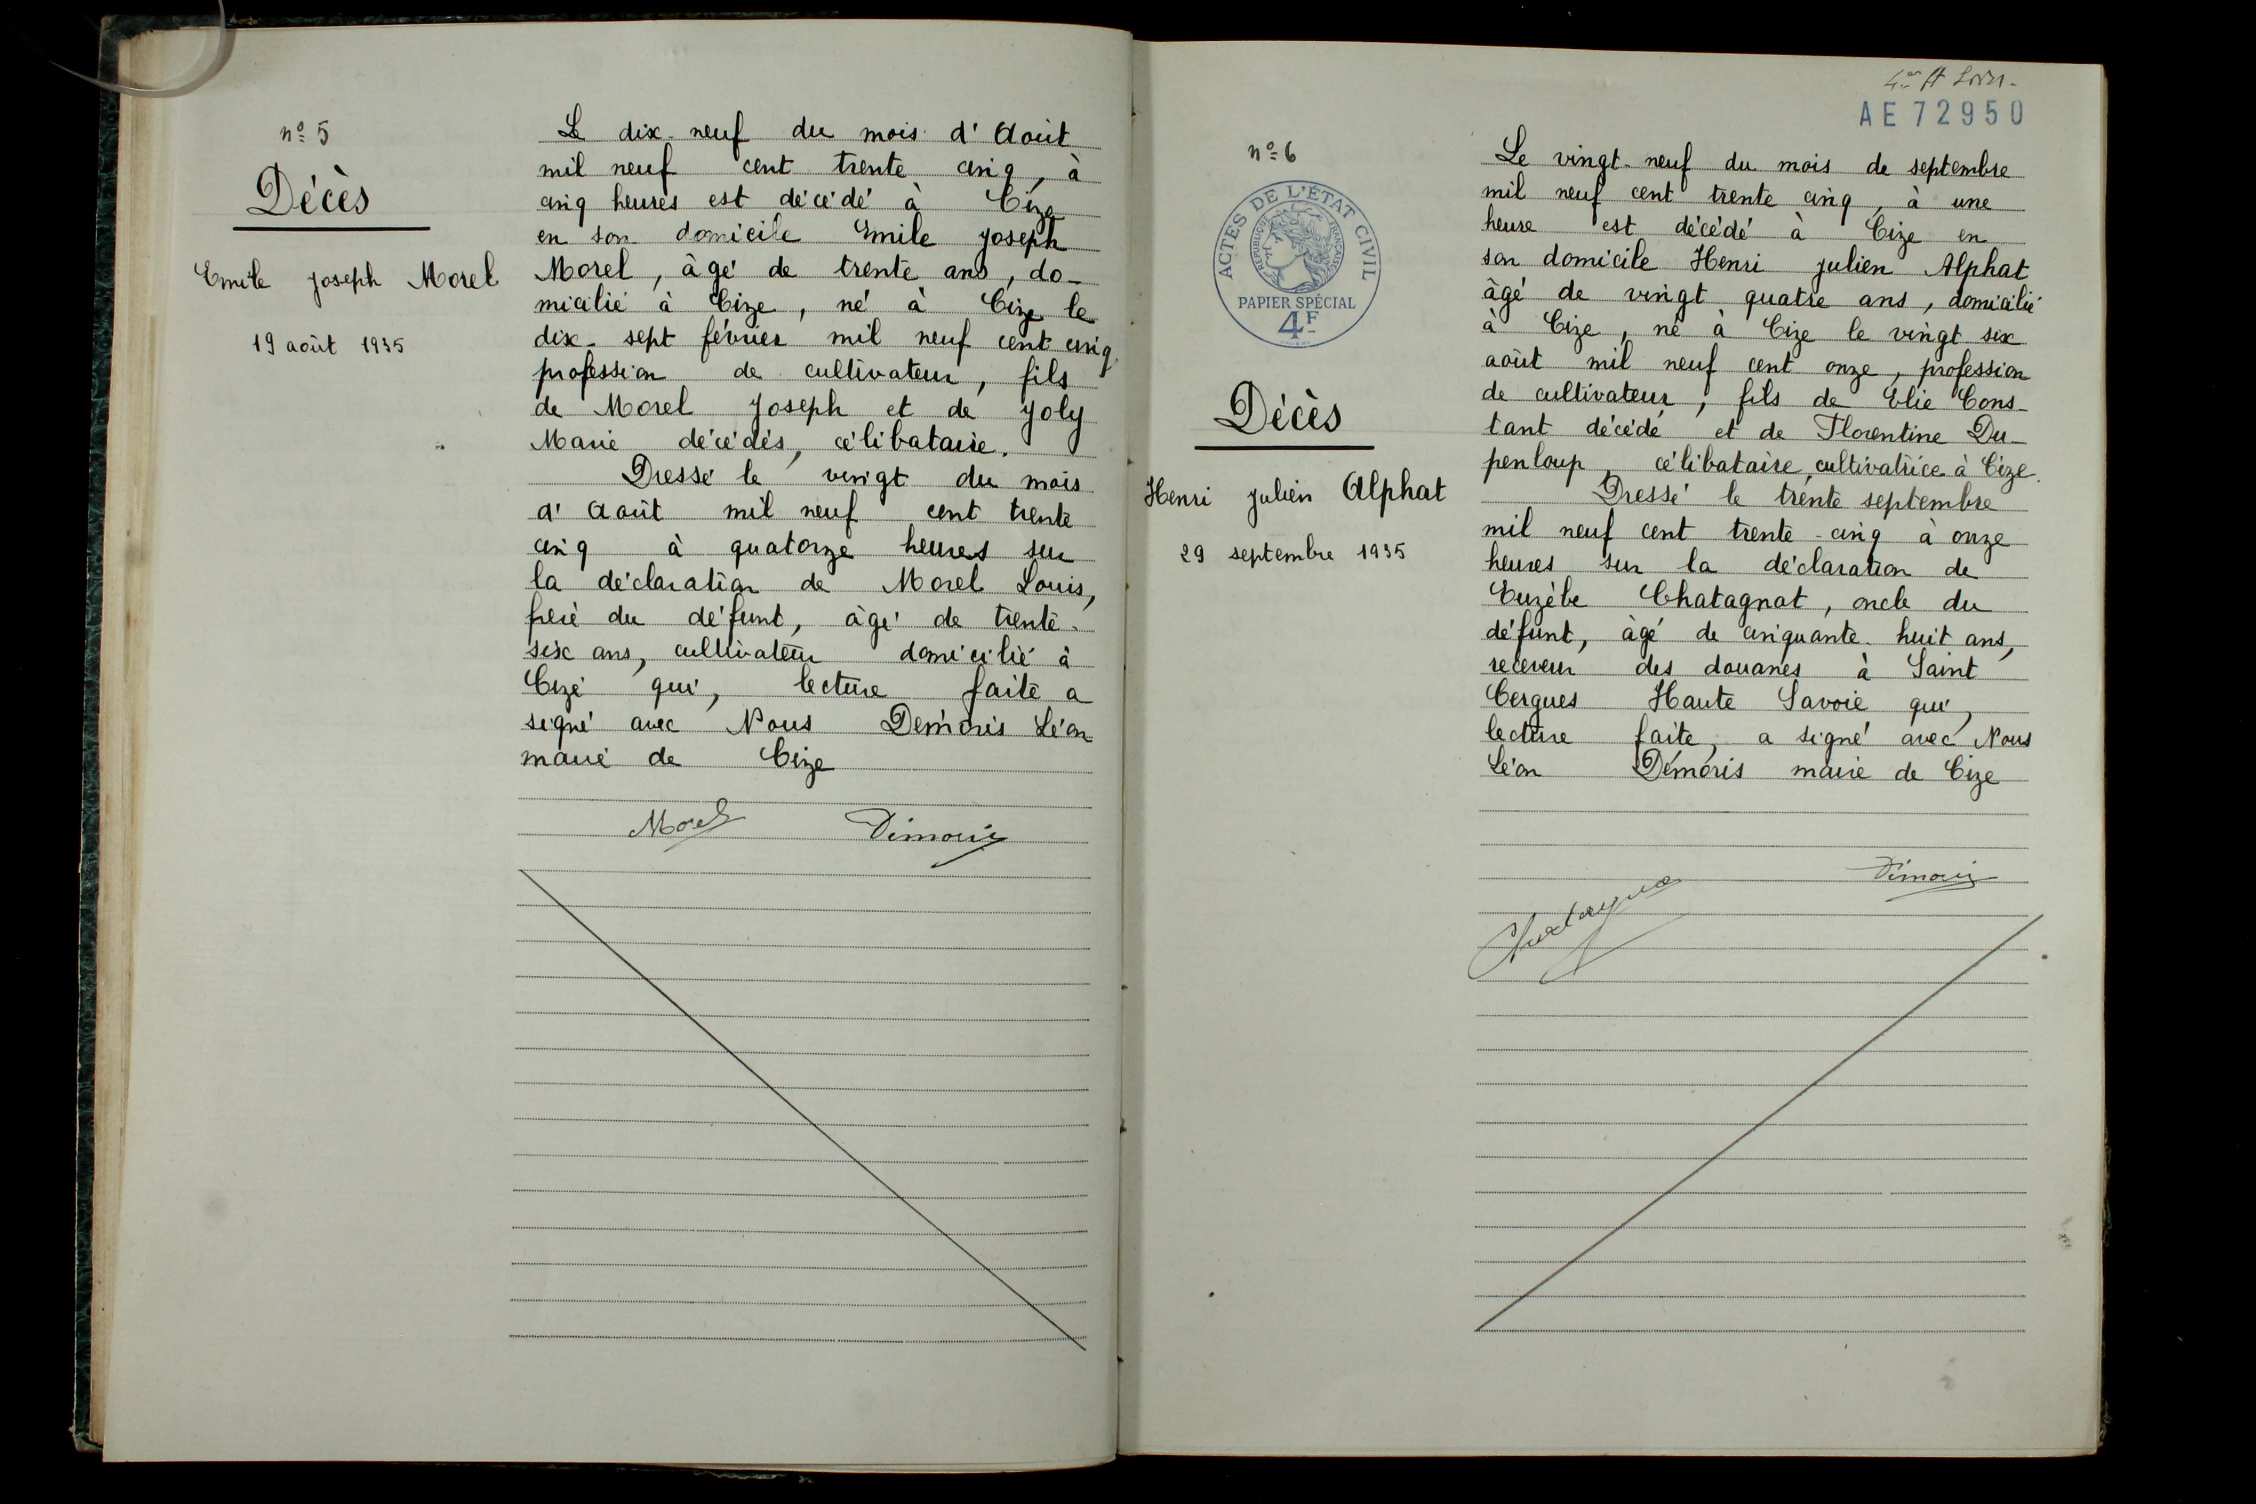 nº 5
Décès
Emile Joseph Morel
19 août 1935
Le dix-neuf du mois d'Août
mil neuf cent trente cinq, à
cinq heures est décédé à Cize
en son domicile Emile Joseph
Morel, âgé de trente ans, do-
micilié à Cize, né à Cize le
dix-sept février mil neuf cent cinq,
profession de cultivateur, fils
de Morel Joseph et de Joly
Marie décédés, célibataire.
Dressé le vingt du mois
d'Août mil neuf cent trente
cinq à quatorze heures sur
la déclaration de Morel Louis,
frère du défunt, âgé de trente-
six ans, cultivateur domicilié à
Cize qui, lecture faite a
signé avec Nous Demoris Léon
maire de Cize
Morel Démoris
AE 72950
nº 6
ACTES DE L'ÉTAT CIVIL
RÉPUBLIQUE FRANÇAISE
PAPIER SPÉCIAL
4F
Décès
Henri Julien Alphat
29 septembre 1935
Le vingt-neuf du mois de septembre
mil neuf cent trente cinq, à une
heure est décédé à Cize en
son domicile Henri Julien Alphat
âgé de vingt quatre ans, domicilié
à Cize, né à Cize le vingt six
août mil neuf cent onze, profession
de cultivateur, fils de Elie Cons-
tant décédé et de Florentine Du-
penloup, célibataire, cultivatrice à Cize.
Dressé le trente septembre
mil neuf cent trente-cinq à onze
heures sur la déclaration de
Euzèbe Chatagnat, oncle du
défunt, âgé de cinquante-huit ans,
receveur des douanes à Saint
Cergues Haute Savoie qui,
lecture faite, a signé avec Nous
Léon Démoris maire de Cize
Démoris
Chatagnat